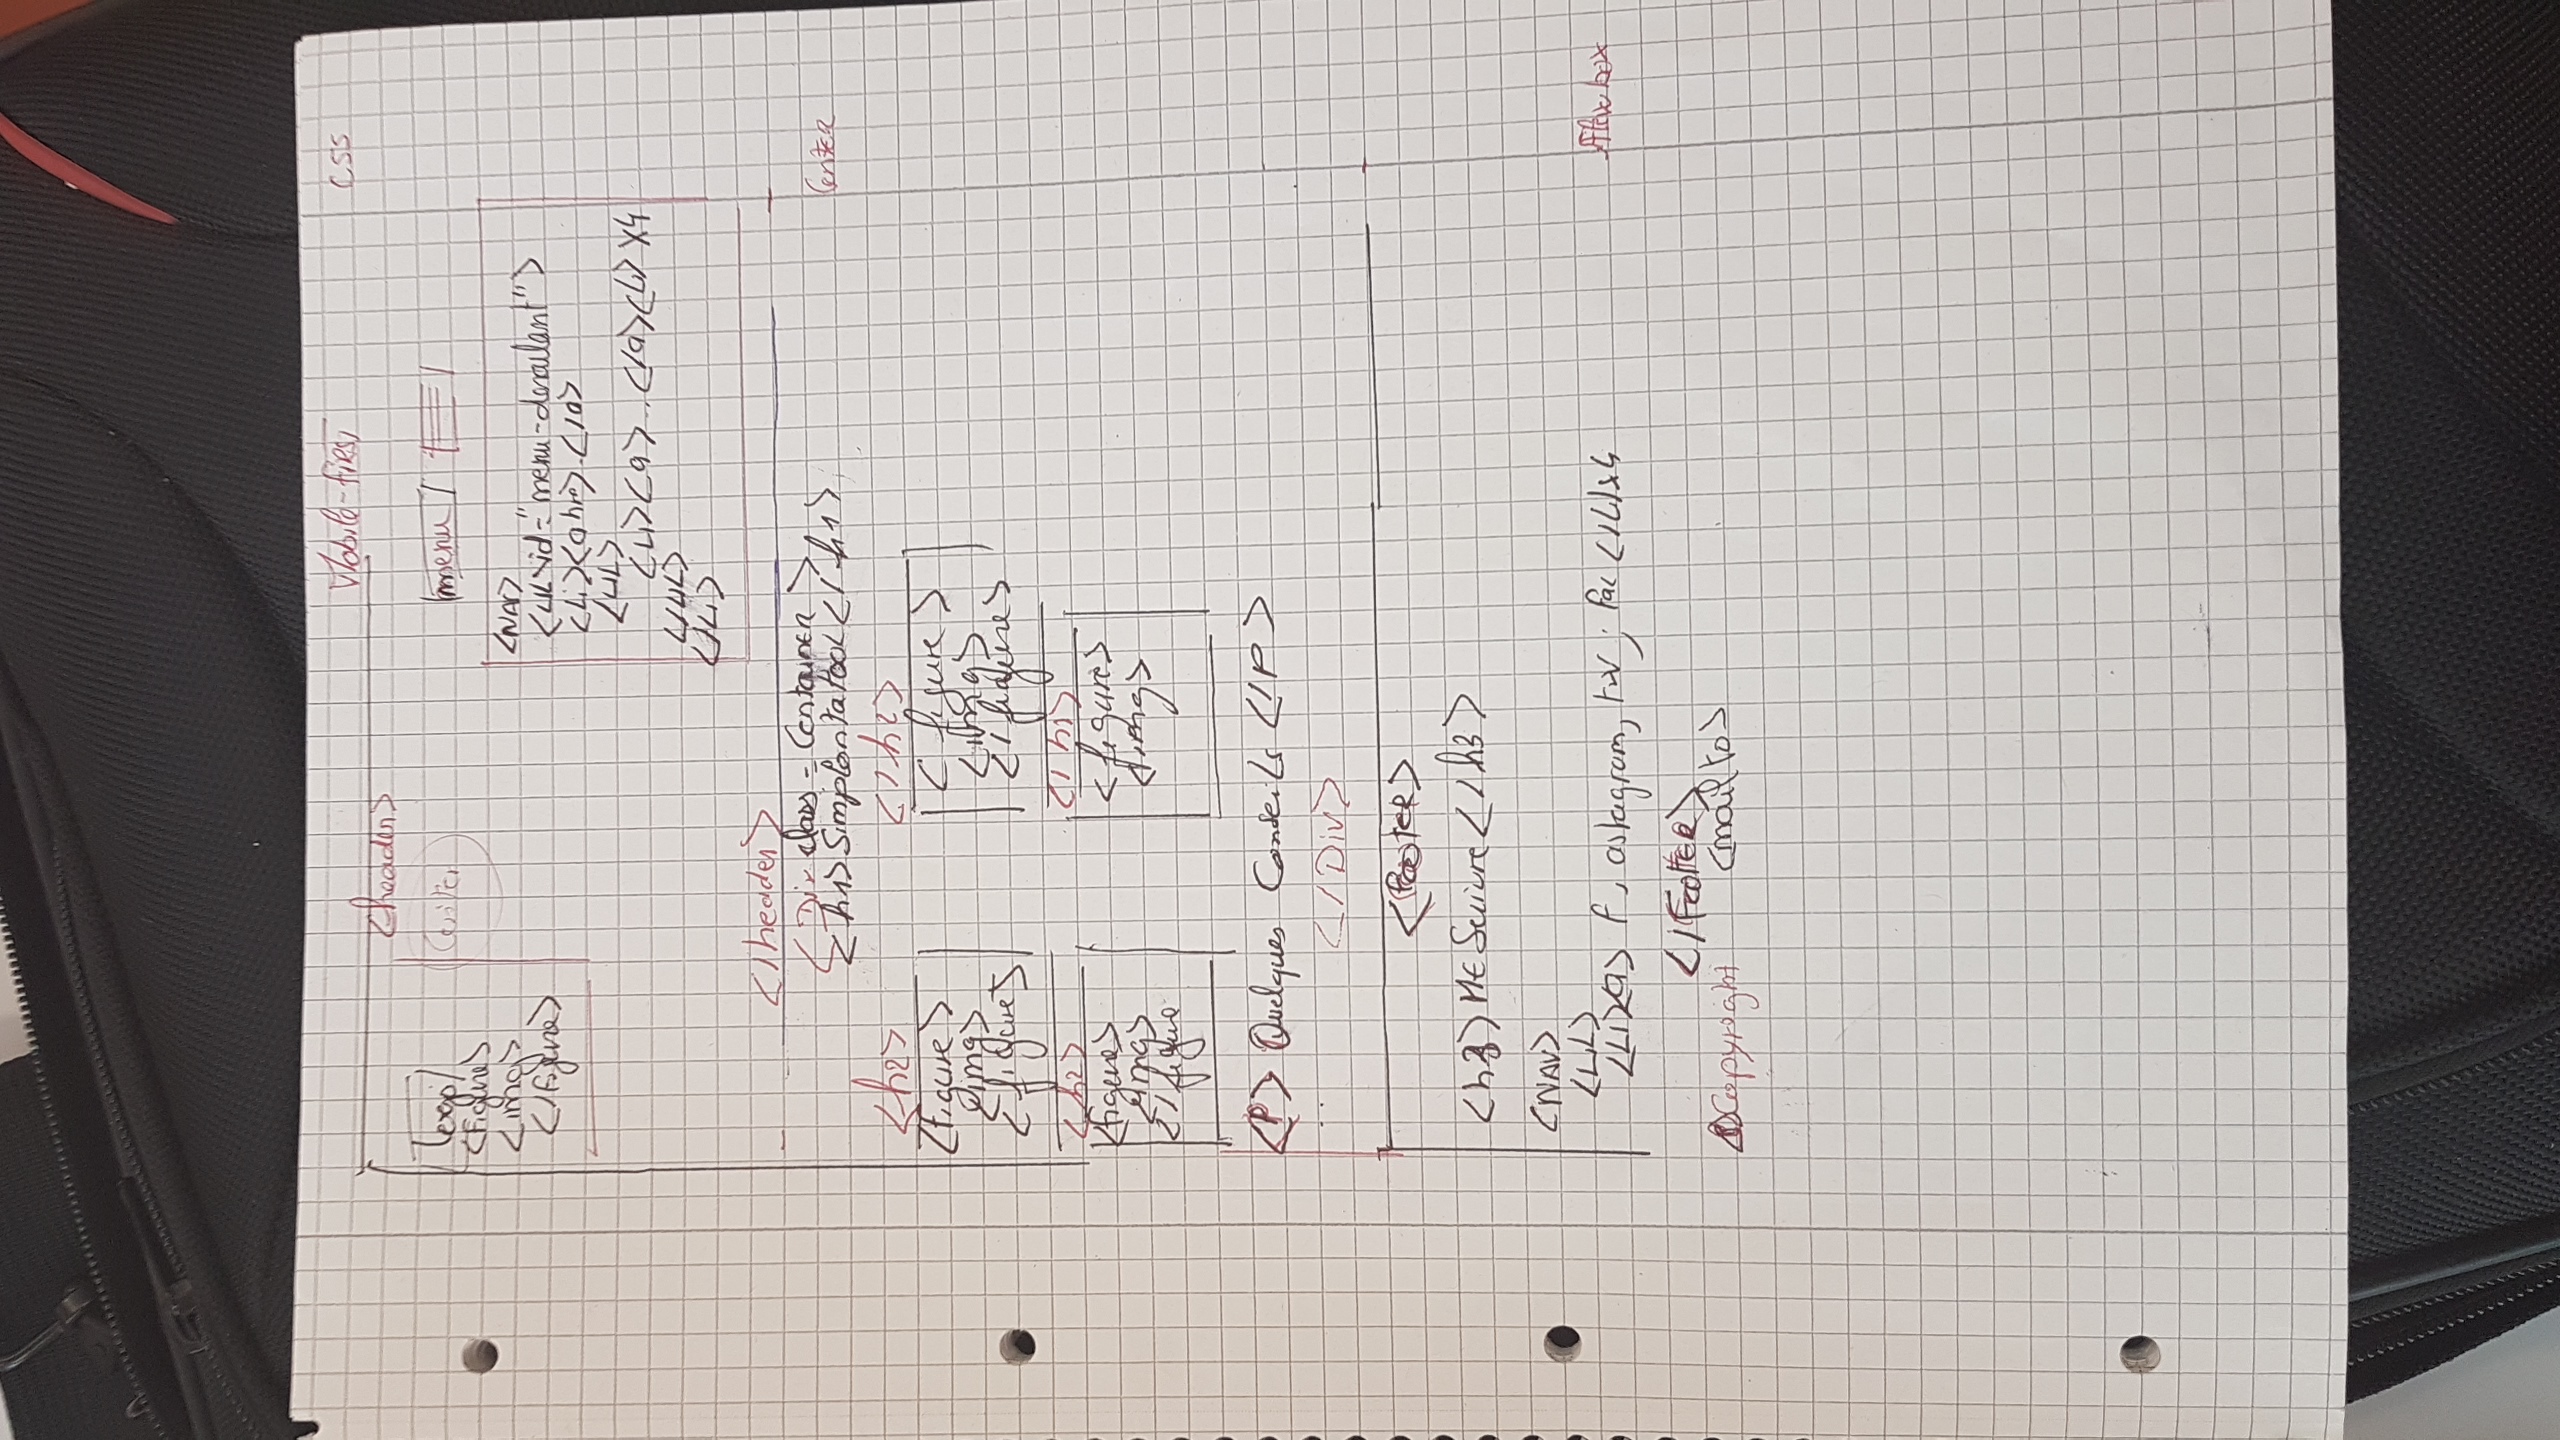 Mobile-first
CSS
<header>
logo
<figure>
<img>
</figure>
menu
<NAV>
<UL id="menu-deroulant">
<Li><a hre> . </a>
<UL>
<Li><a> . </a><Li> X4
</UL>
</Li>
</header>
<Div class = Container>
<h1> Simplontatoo </h1>
Center
<h2> </h2>
<figure>
<img>
<figure>
<figure>
<img>
</figure>
<h2> </h1>
<figure>
<img>
</figure
<figure>
<img>
<P> Quelques Conseils </P>
</Div>
<Footer>
<h3> ME Suivre </h3>
<NAV>
<UL>
<Li><a> f, astagram,
</Li>x4
Flex box
</Footer>
Copyright <mail to>